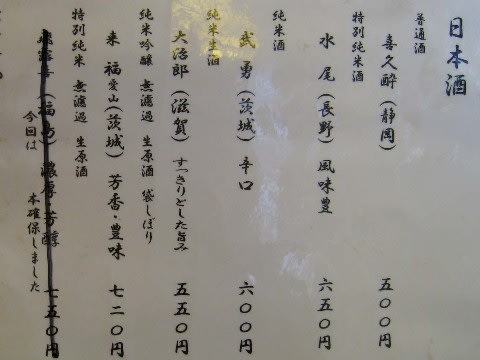 日本酒
普通酒
喜久酔(静岡) 五〇〇円
特別純米酒
水尾(長野)風味豊 六五〇円
純米酒
武勇(茨城)辛口 六〇〇円
純米生酒
大治郎(滋賀)すっきりとした旨み 五五〇円
純米吟醸 無濾過 生原酒 袋しぼり
来福愛山(茨城)芳香・豊味 七二〇円
特別純米 無濾過 生原酒
濃厚・芳醇 七五〇円
今回は 本確保しました